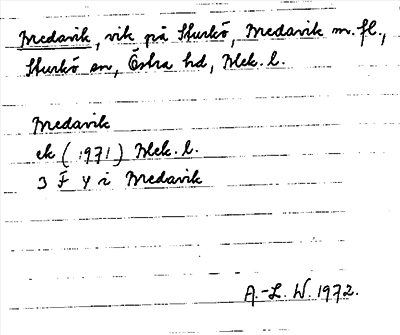 Medavik, vik på Sturkö, Medavik m.fl.,
Sturkö sn, Östra hd, Blek. l.
Medavik
ek (1971) Blek. l.
3 F 4 i Medavik
A.-L. W. 1972.